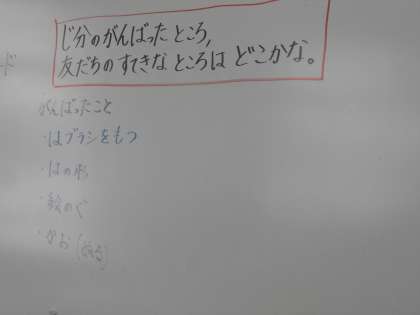 じ分のがんばったところ,
友だちのすてきなところは どこかな。
ド
がんばったこと
・はブラシをもつ
・はの形
・絵のぐ
・かお